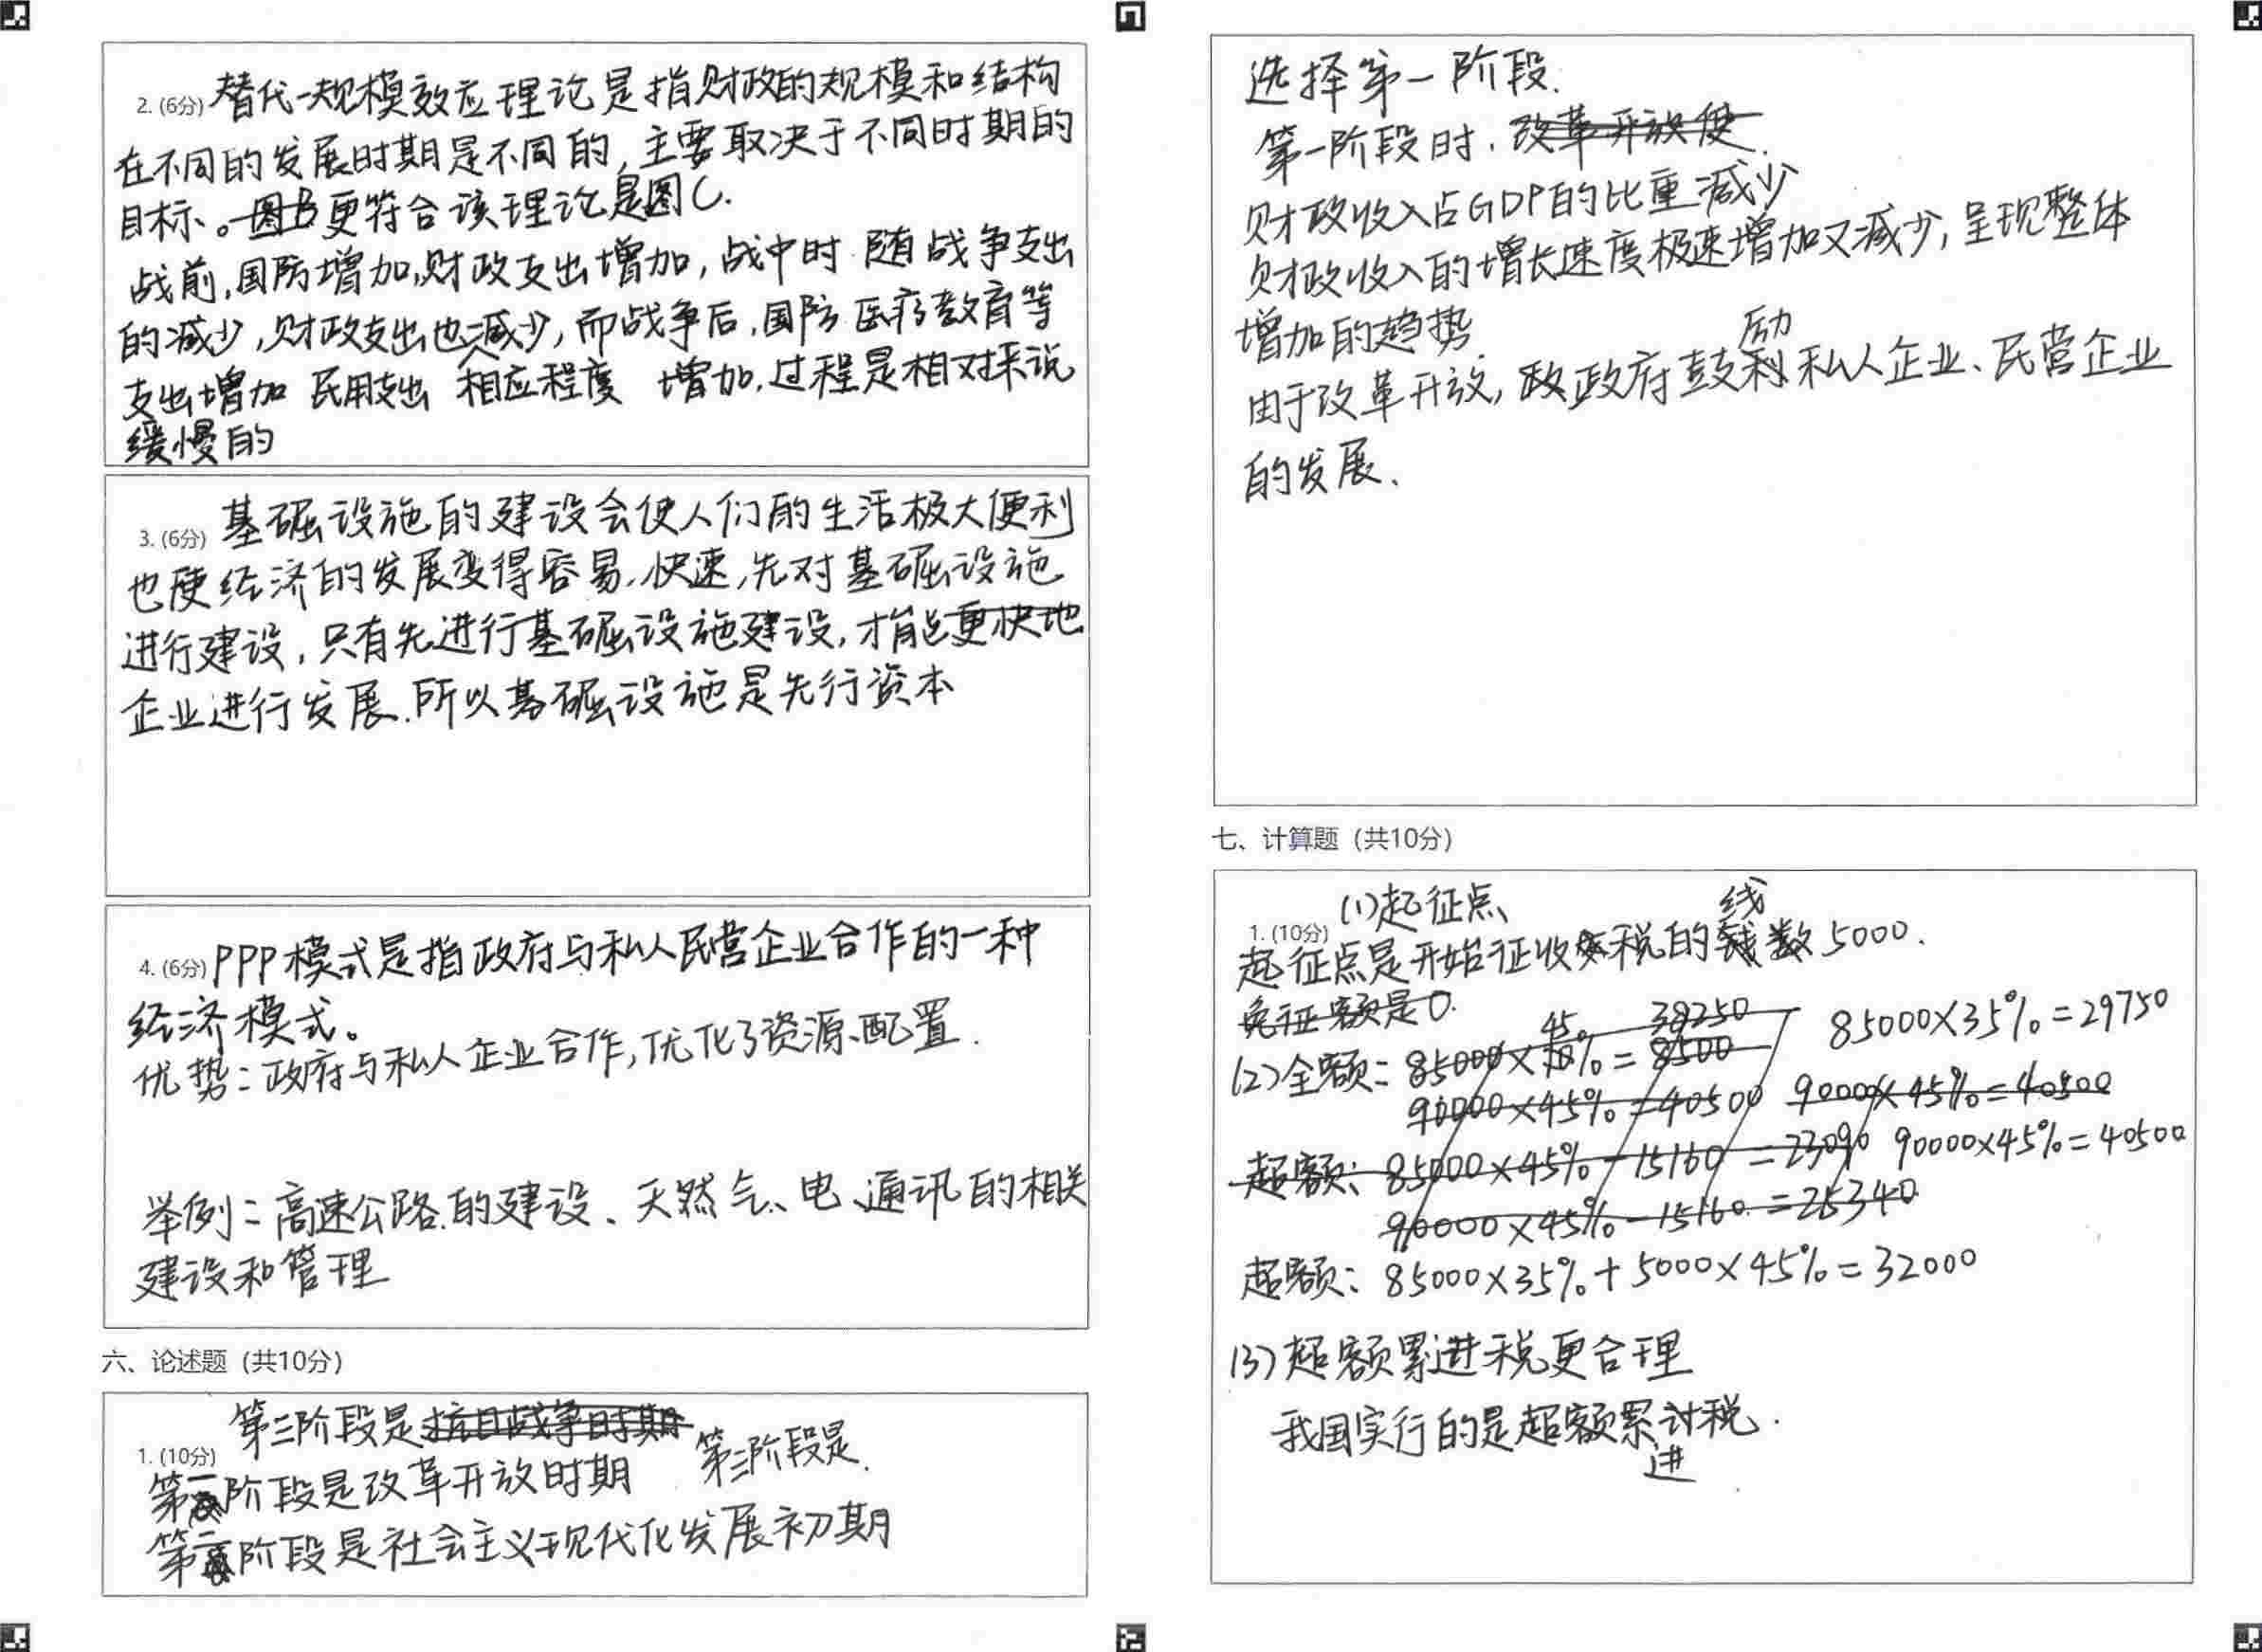 2. (6分) 替代-规模效应理论是指财政的规模和结构
在不同的发展时期是不同的,主要取决于不同时期的
目标。图B更符合该理论是图C.
战前,国防增加,财政支出增加,战中时随战争支出
的减少,财政支出也减少,而战争后,国防医疗教育等
支出增加 民用支出 相应程度 增加,过程是相对来说
缓慢的
3. (6分) 基础设施的建设会使人们的生活极大便利
也使经济的发展变得容易.快速,先对基础设施
进行建设,只有先进行基础设施建设,才能更快地
企业进行发展.所以基础设施是先行资本
4. (6分) PPP模式是指政府与私人民营企业合作的一种
经济模式。
优势:政府与私人企业合作,优化了资源、配置.
举例:高速公路.的建设、天然气、电、通讯的相关
建设和管理
六、论述题 (共10分)
第三阶段是抗日战争时期 第三阶段是.
1. (10分)
第一阶段是改革开放时期
第二阶段是社会主义现代化发展初期
选择第一阶段.
第一阶段时.改革开放使
财政收入占GDP的比重减少
财政收入的增长速度极速增加又减少,呈现整体
增加的趋势
励
由于改革开放,政政府鼓利私人企业、民营企业
的发展、
七、计算题 (共10分)
(1)起征点 线
1. (10分)
起征点是开始征收税的 数5000.
免征额是0.
45 38250
(2)全额:85000×10%=8500 85000×35%=29750
90000×45%=40500 90000×45%=40500
超额:85000×45%-15160=23090 90000×45%=40500
90000×45%-15160=25340
超额:85000×35%+5000×45%=32000
(3)超额累进税更合理
我国实行的是超额累计税.
进